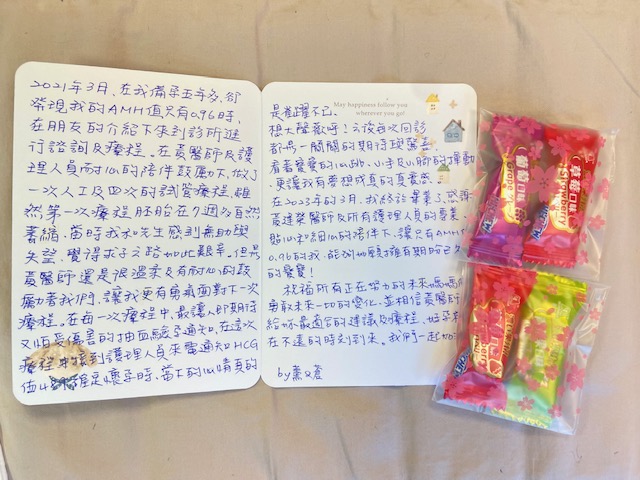 2021年3月，在我備孕五年多，卻
發現我的AMH值只有0.96時，
在朋友的介紹下來到診所進
行諮詢及療程。在黃醫師及護
理人員耐心的陪伴鼓應下，做了
一次人工及四次的試管療程，雖
然第一次療程胚胎在7週多自然
萎縮，當時我和先生感到無助與
失望，覺得求子之路如此艱辛。但是
黃醫師還是很溫柔及有耐心的鼓
勵著我們，讓我更有勇氣面對下一次
療程。在每一次療程中，最讓人即期待
又怕受傷害的抽血驗孕通知，在這次
療程中接到護理人員來電通知HCG
值 確定是懷孕時，當下的心情真的
是雀躍不已。
想大聲歡呼！之後每次回診
都是一關關的期待與驚喜，
看著寶寶的心跳、小手及小腳的揮動
更讓我有夢想成真的真實感。
在2023年的3月，我終於畢業了，感謝
黃建榮醫師及所有護理人員的專業、
貼心和細心的陪伴下，讓只有AMH
0.96的我，能夠如願擁有期盼已久
的寶寶！
祝福所有正在努力的未來媽媽們
勇敢未來一切的變化，並相信黃醫師
給妳最適合的建議及療程，好孕
在不遠的時刻到來。我們一起加油
by蕭
May happiness follow you
wherever you go!
葡萄口味
Grape
草莓口味
Strawberry